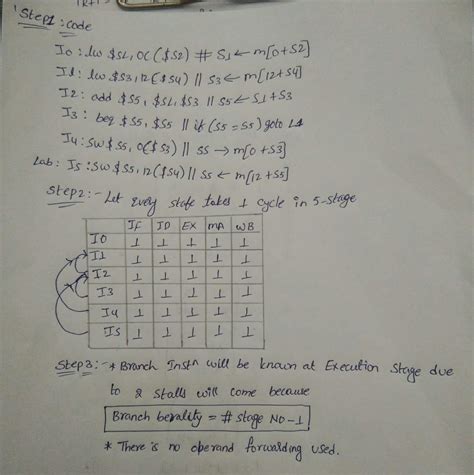 Step1: Code
I0: lw $S1, 0($S2) # S1 ← m[0+S2]
I1: lw $S3, 12($S4) || S3 ← m[12+S4]
I2: add $S5, $S1, $S3 || S5 ← S1+S3
I3: beq $S5, $S5 || if (S5 = S5) goto L1
I4: SW $S5, 0($S3) || S5 → m[0+S3]
Lab: I5: SW $S5, 12($S4) || S5 ← m[12+S5]
Step2:- Let Every state takes 1 cycle in 5-stage
If ID EX MA WB
I0 1 1 1 1 1
I1 1 1 1 1 1
I2 1 1 1 1 1
I3 1 1 1 1 1
I4 1 1 1 1 1
I5 1 1 1 1 1
Step3:- * Branch Instn will be known at Execution Stage due
to 2 Stalls will come because
Branch benality = # Stage NO-1
* There is no operand forwarding used.